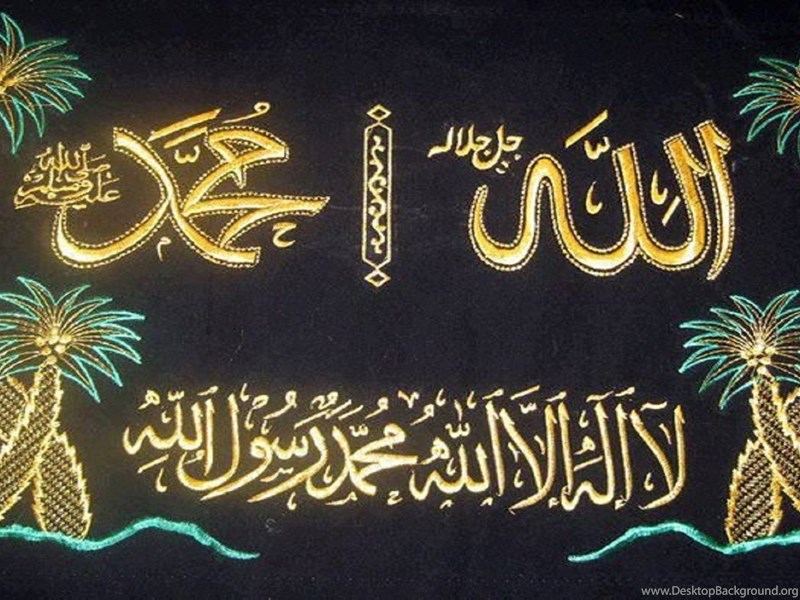 اللَّه جل جلاله
محمَّد صلى الله عليه وسلم
لَا إِلٰهَ إِلَّا اللّٰهُ مُحَمَّدٌ رَسُولُ اللّٰهِ
www.DesktopBackground.org